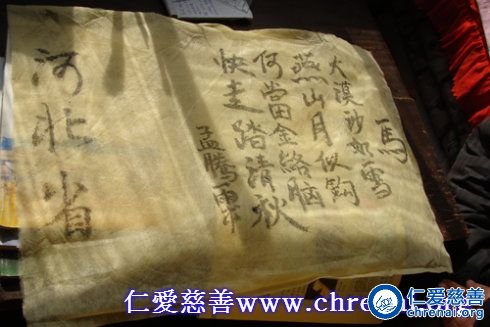 馬
大漠沙如雪
燕山月似鉤
何當金絡腦
快走踏清秋
孟騰
河北省
仁愛慈善www.chren
仁爱慈善
chrenai.org